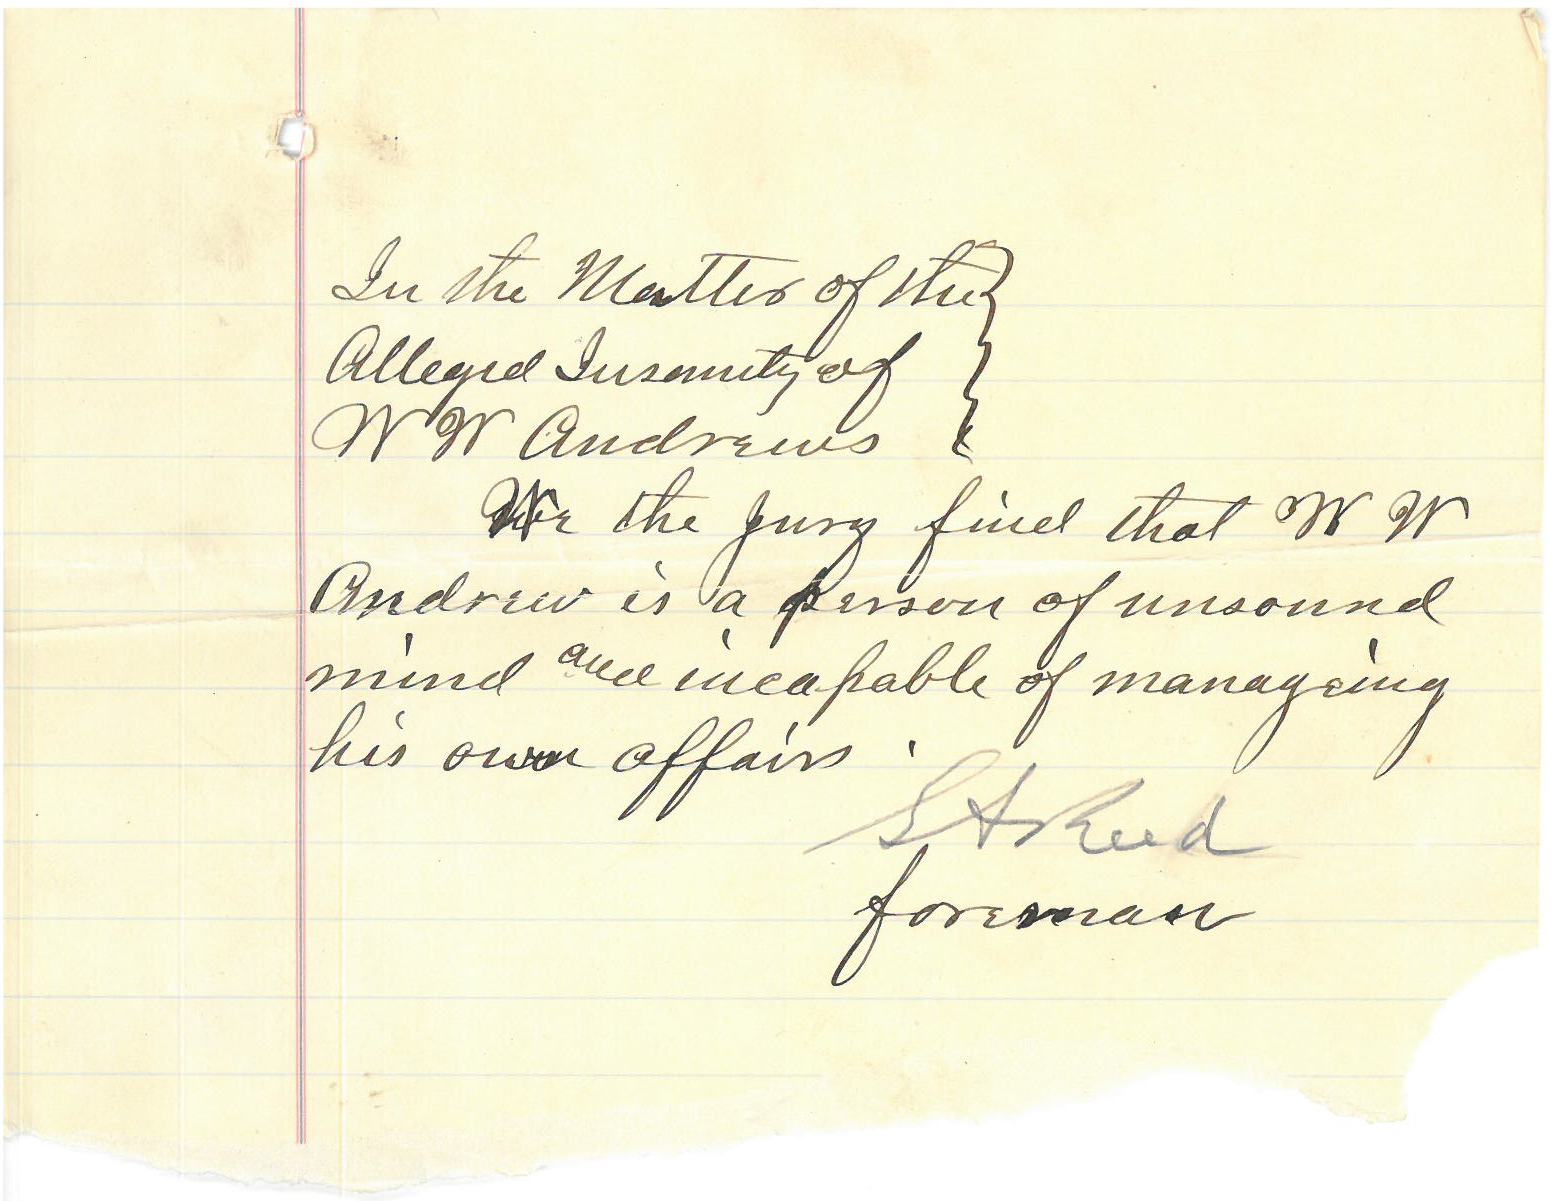 In the Matter of the
Alleged Insanity of
W W Andrews
We the jury find that W W
Andrew is a person of unsound
mind and incapable of manageing
his own affairs.
S A Reed
foreman